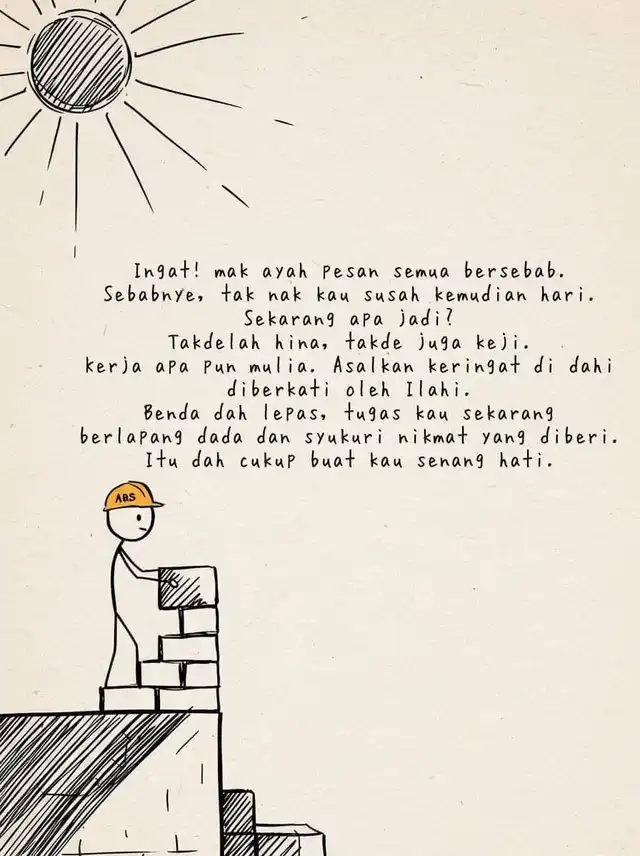 Ingat! mak ayah pesan semua bersebab.
Sebabnye, tak nak kau susah kemudian hari.
Sekarang apa jadi?
Takdelah hina, takde juga keji.
kerja apa pun mulia. Asalkan keringat di dahi
diberkati oleh Ilahi.
Benda dah lepas, tugas kau sekarang
berlapang dada dan syukuri nikmat yang diberi.
Itu dah cukup buat kau senang hati.
ABS